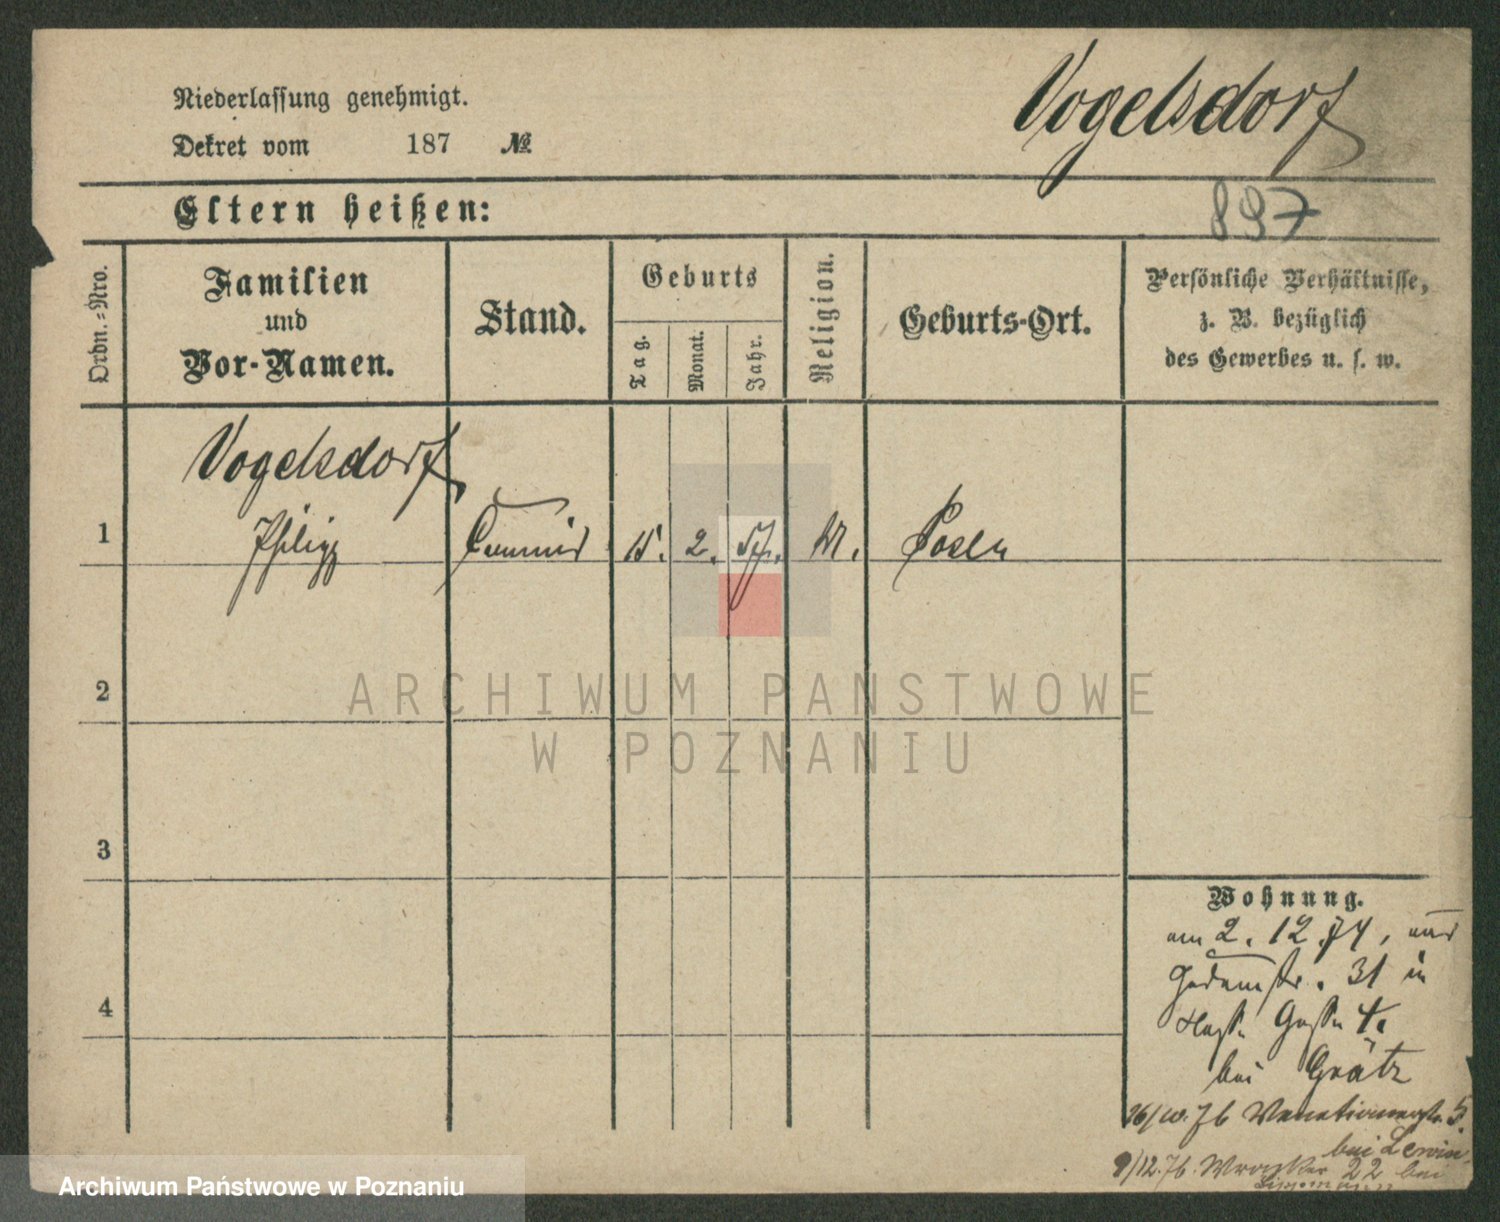 Niederlassung genehmigt.
Dekret vom 187 №
Vogelsdorf
897
Eltern heißen:
Ordn.-Nro.
Familien
und
Vor-Namen.
Stand.
Geburts
Tag.
Monat.
Jahr.
Religion.
Geburts-Ort.
Persönliche Verhältnisse,
z. B. bezüglich
des Gewerbes u. s. w.
Vogelsdorf
1 Philipp Commis 15. 2. 57. M. Posen
2
3
4
ARCHIWUM PAŃSTWOWE
W POZNANIU
Wohnung.
am 2. 12. 74,
31 in
4.
bei Grätz
16/10. 76 Venetianerstr. 5.
bei Lewin
9/12. 76. Wronker 22 bei
Lippmann
Archiwum Państwowe w Poznaniu